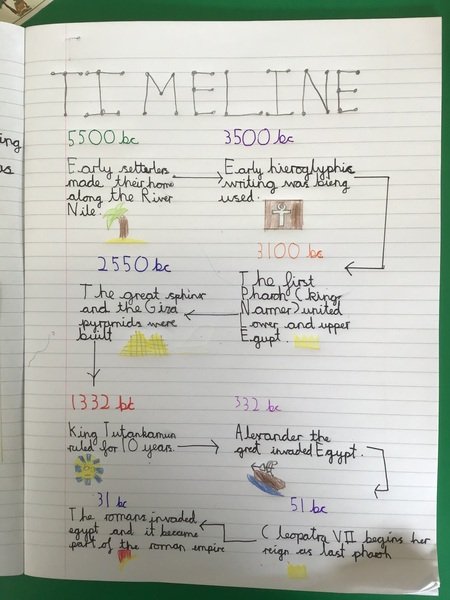 ing
as
TIMELINE
5500 bc
Early setterlers
made their home
along the River
Nile.
3500 bc
Early hieroglyphic
writing was being
used.
3100 bc
The first
Pharoh (king
Narmer) united
Lower and upper
Egypt.
2550 bc
The great sphinx
and the Giza
pyramids were
built
1332 bc
King Tutankamun
ruled for 10 years.
332 bc
Alexander the
great invaded Egypt.
51 bc
Cleopatra VII begins her
reign as last pharoh
31 bc
The romans invaded
egypt and it became
part of the roman empire